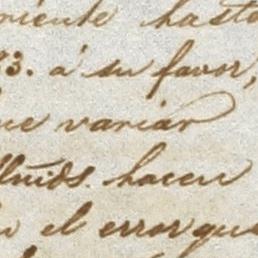 niente hasta
3. á su favor,
ue variar
hacen
el error que